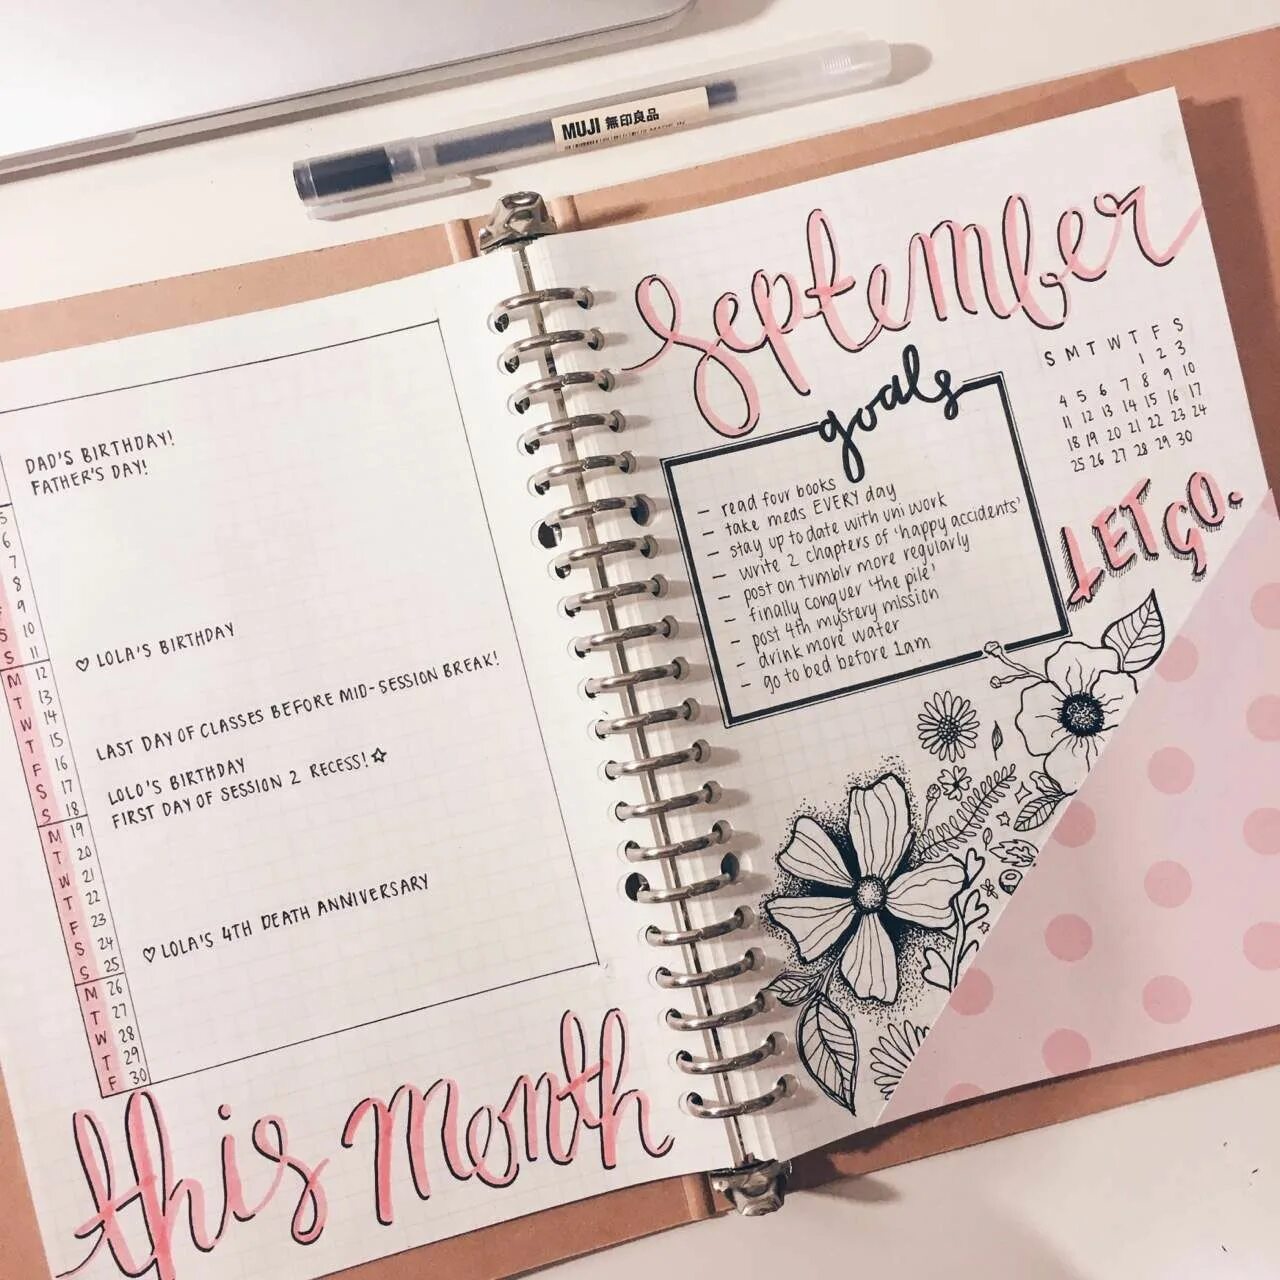 MUJI 無印良品
DAD'S BIRTHDAY!
FATHER'S DAY!
5
6
7
8
9
S 10
S 11
M 12
T 13
W 14
T 15
F 16
S 17
S 18
M 19
T 20
W 21
T 22
F 23
S 24
S 25
M 26
T 27
W 28
T 29
F 30
♡ LOLA'S BIRTHDAY
LAST DAY OF CLASSES BEFORE MID-SESSION BREAK!
LOLO'S BIRTHDAY
FIRST DAY OF SESSION 2 RECESS! ☆
♡ LOLA'S 4TH DEATH ANNIVERSARY
this month
September
goals
- read four books
- take meds EVERY day
- stay up to date with uni work
- write 2 chapters of 'happy accidents'
- post on tumblr more regularly
- finally conquer 'the pile'
- post 4th mystery mission
- drink more water
- go to bed before 1am
S M T W T F S
1 2 3
4 5 6 7 8 9 10
11 12 13 14 15 16 17
18 19 20 21 22 23 24
25 26 27 28 29 30
LET
GO.